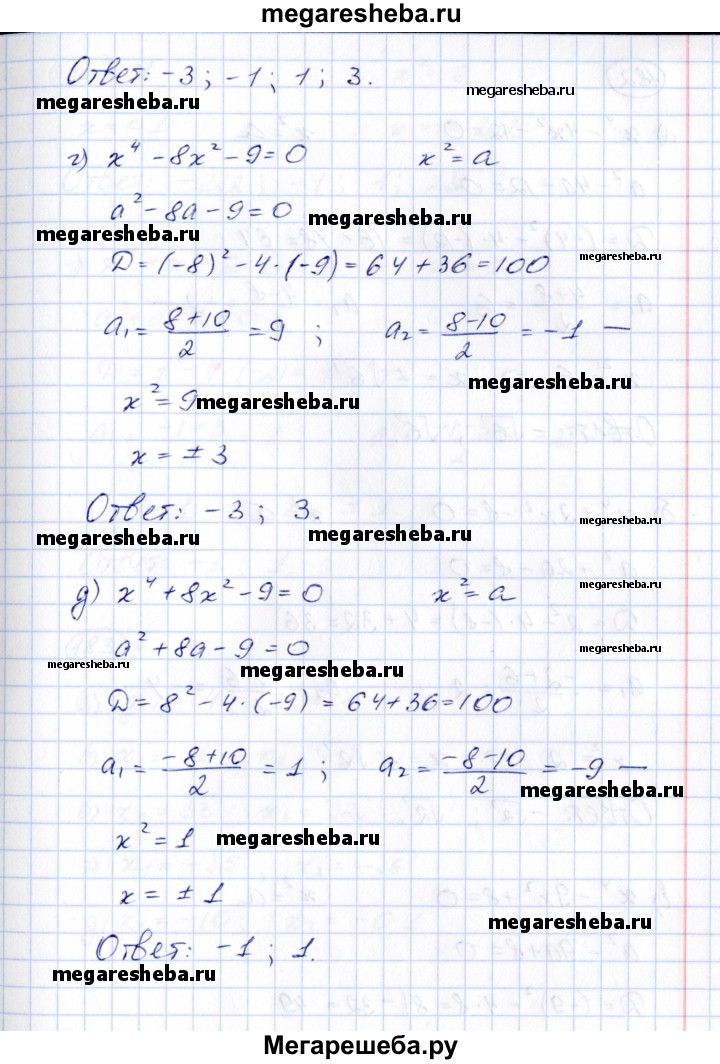 megaresheba.ru
Ответ: -3; -1; 1; 3.
megaresheba.ru megaresheba.ru
г) x⁴ - 8x² - 9 = 0 x² = a
a² - 8a - 9 = 0 megaresheba.ru
megaresheba.ru megaresheba.ru
Д = (-8)² - 4·(-9) = 64 + 36 = 100
a₁ = (8+10)/2 = 9; a₂ = (8-10)/2 = -1 —
megaresheba.ru
x² = 9 megaresheba.ru
x = ± 3
Ответ: -3; 3.
megaresheba.ru
megaresheba.ru megaresheba.ru
д) x⁴ + 8x² - 9 = 0 x² = a
a² + 8a - 9 = 0
megaresheba.ru megaresheba.ru megaresheba.ru
Д = 8² - 4·(-9) = 64 + 36 = 100
a₁ = (-8+10)/2 = 1; a₂ = (-8-10)/2 = -9 —
megaresheba.ru
x² = 1 megaresheba.ru
x = ± 1
megaresheba.ru
Ответ: -1; 1.
megaresheba.ru
Мегарешеба.ру